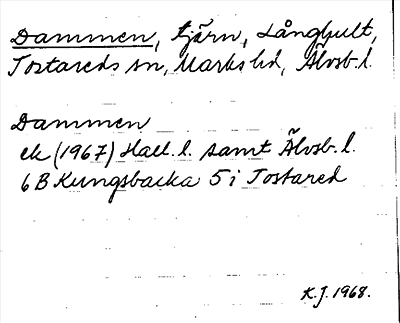 Dammen, tjärn, Långhult,
Tostareds sn, Marks hd, Älvsb. l.
Dammen
ek (1967) Hall. l. samt Älvsb. l.
6 B Kungsbacka 5 i Tostared
K.J. 1968.